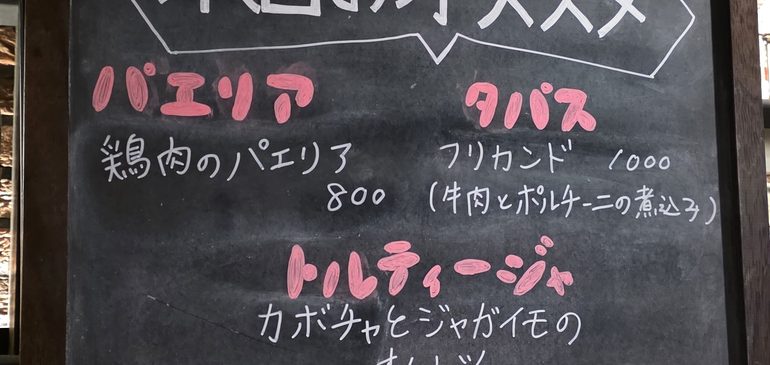 本日のオススメ
パエリア
鶏肉のパエリア
800
タパス
フリカンド 1000
(牛肉とポルチーニの煮込み)
トルティージャ
カボチャとジャガイモの
オムレツ